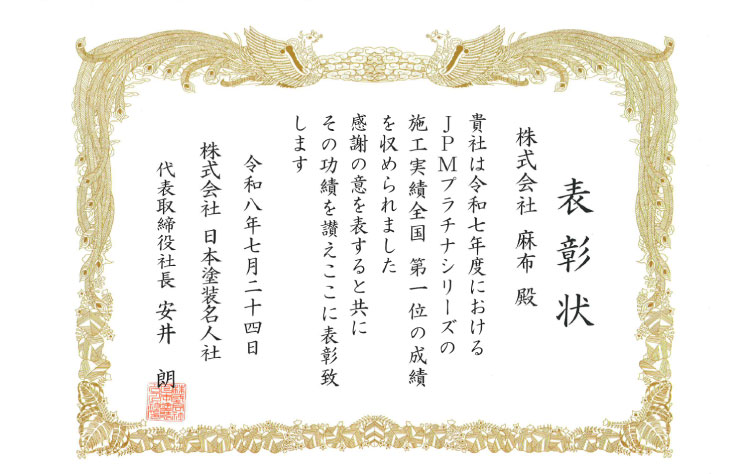 表彰状
株式会社 麻布 殿
貴社は令和七年度における
JPMプラチナシリーズの
施工実績全国 第一位の成績
を収められました
感謝の意を表すると共に
その功績を讃えここに表彰致
します
令和八年七月二十四日
株式会社 日本塗装名人社
代表取締役社長 安井 朗